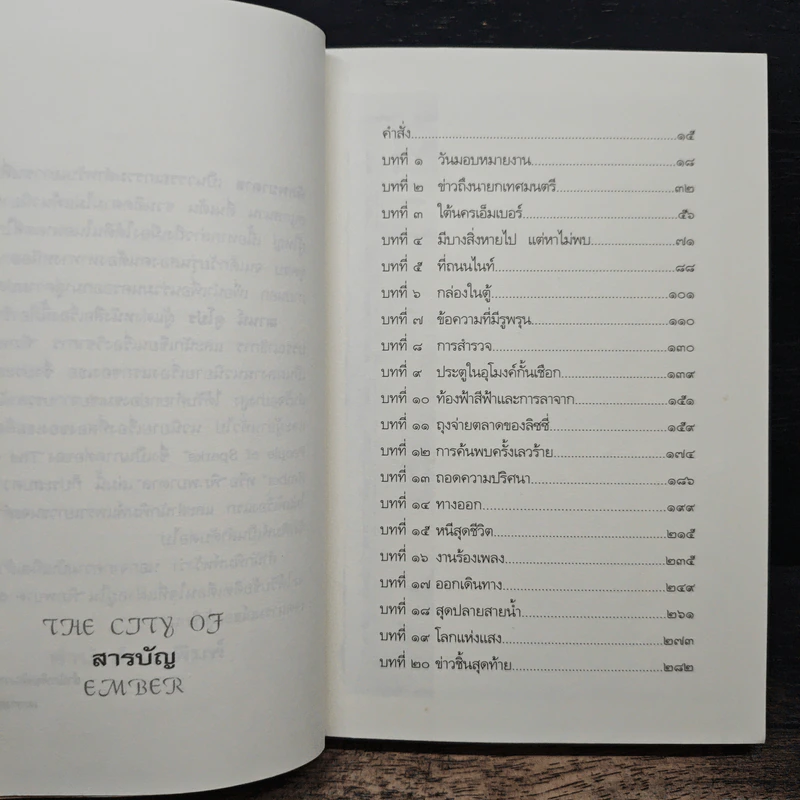 THE CITY OF
สารบัญ
EMBER
คำสั่ง....................๑๕
บทที่ ๑ วันมอบหมายงาน....................๑๘
บทที่ ๒ ข่าวถึงนายกเทศมนตรี....................๓๒
บทที่ ๓ ใต้นครเอ็มเบอร์....................๕๖
บทที่ ๔ มีบางสิ่งหายไป แต่หาไม่พบ....................๗๑
บทที่ ๕ ที่ถนนไนท์....................๘๘
บทที่ ๖ กล่องในตู้....................๑๐๑
บทที่ ๗ ข้อความที่มีรูพรุน....................๑๑๐
บทที่ ๘ การสำรวจ....................๑๓๐
บทที่ ๙ ประตูในอุโมงค์กั้นเชือก....................๑๓๙
บทที่ ๑๐ ท้องฟ้าสีฟ้าและการลาจาก....................๑๕๑
บทที่ ๑๑ ถุงจ่ายตลาดของลิซซี่....................๑๕๙
บทที่ ๑๒ การค้นพบครั้งเลวร้าย....................๑๗๔
บทที่ ๑๓ ถอดความปริศนา....................๑๘๖
บทที่ ๑๔ ทางออก....................๑๙๙
บทที่ ๑๕ หนีสุดชีวิต....................๒๑๕
บทที่ ๑๖ งานร้องเพลง....................๒๓๕
บทที่ ๑๗ ออกเดินทาง....................๒๔๙
บทที่ ๑๘ สุดปลายสายน้ำ....................๒๖๑
บทที่ ๑๙ โลกแห่งแสง....................๒๗๓
บทที่ ๒๐ ข่าวชิ้นสุดท้าย....................๒๘๒